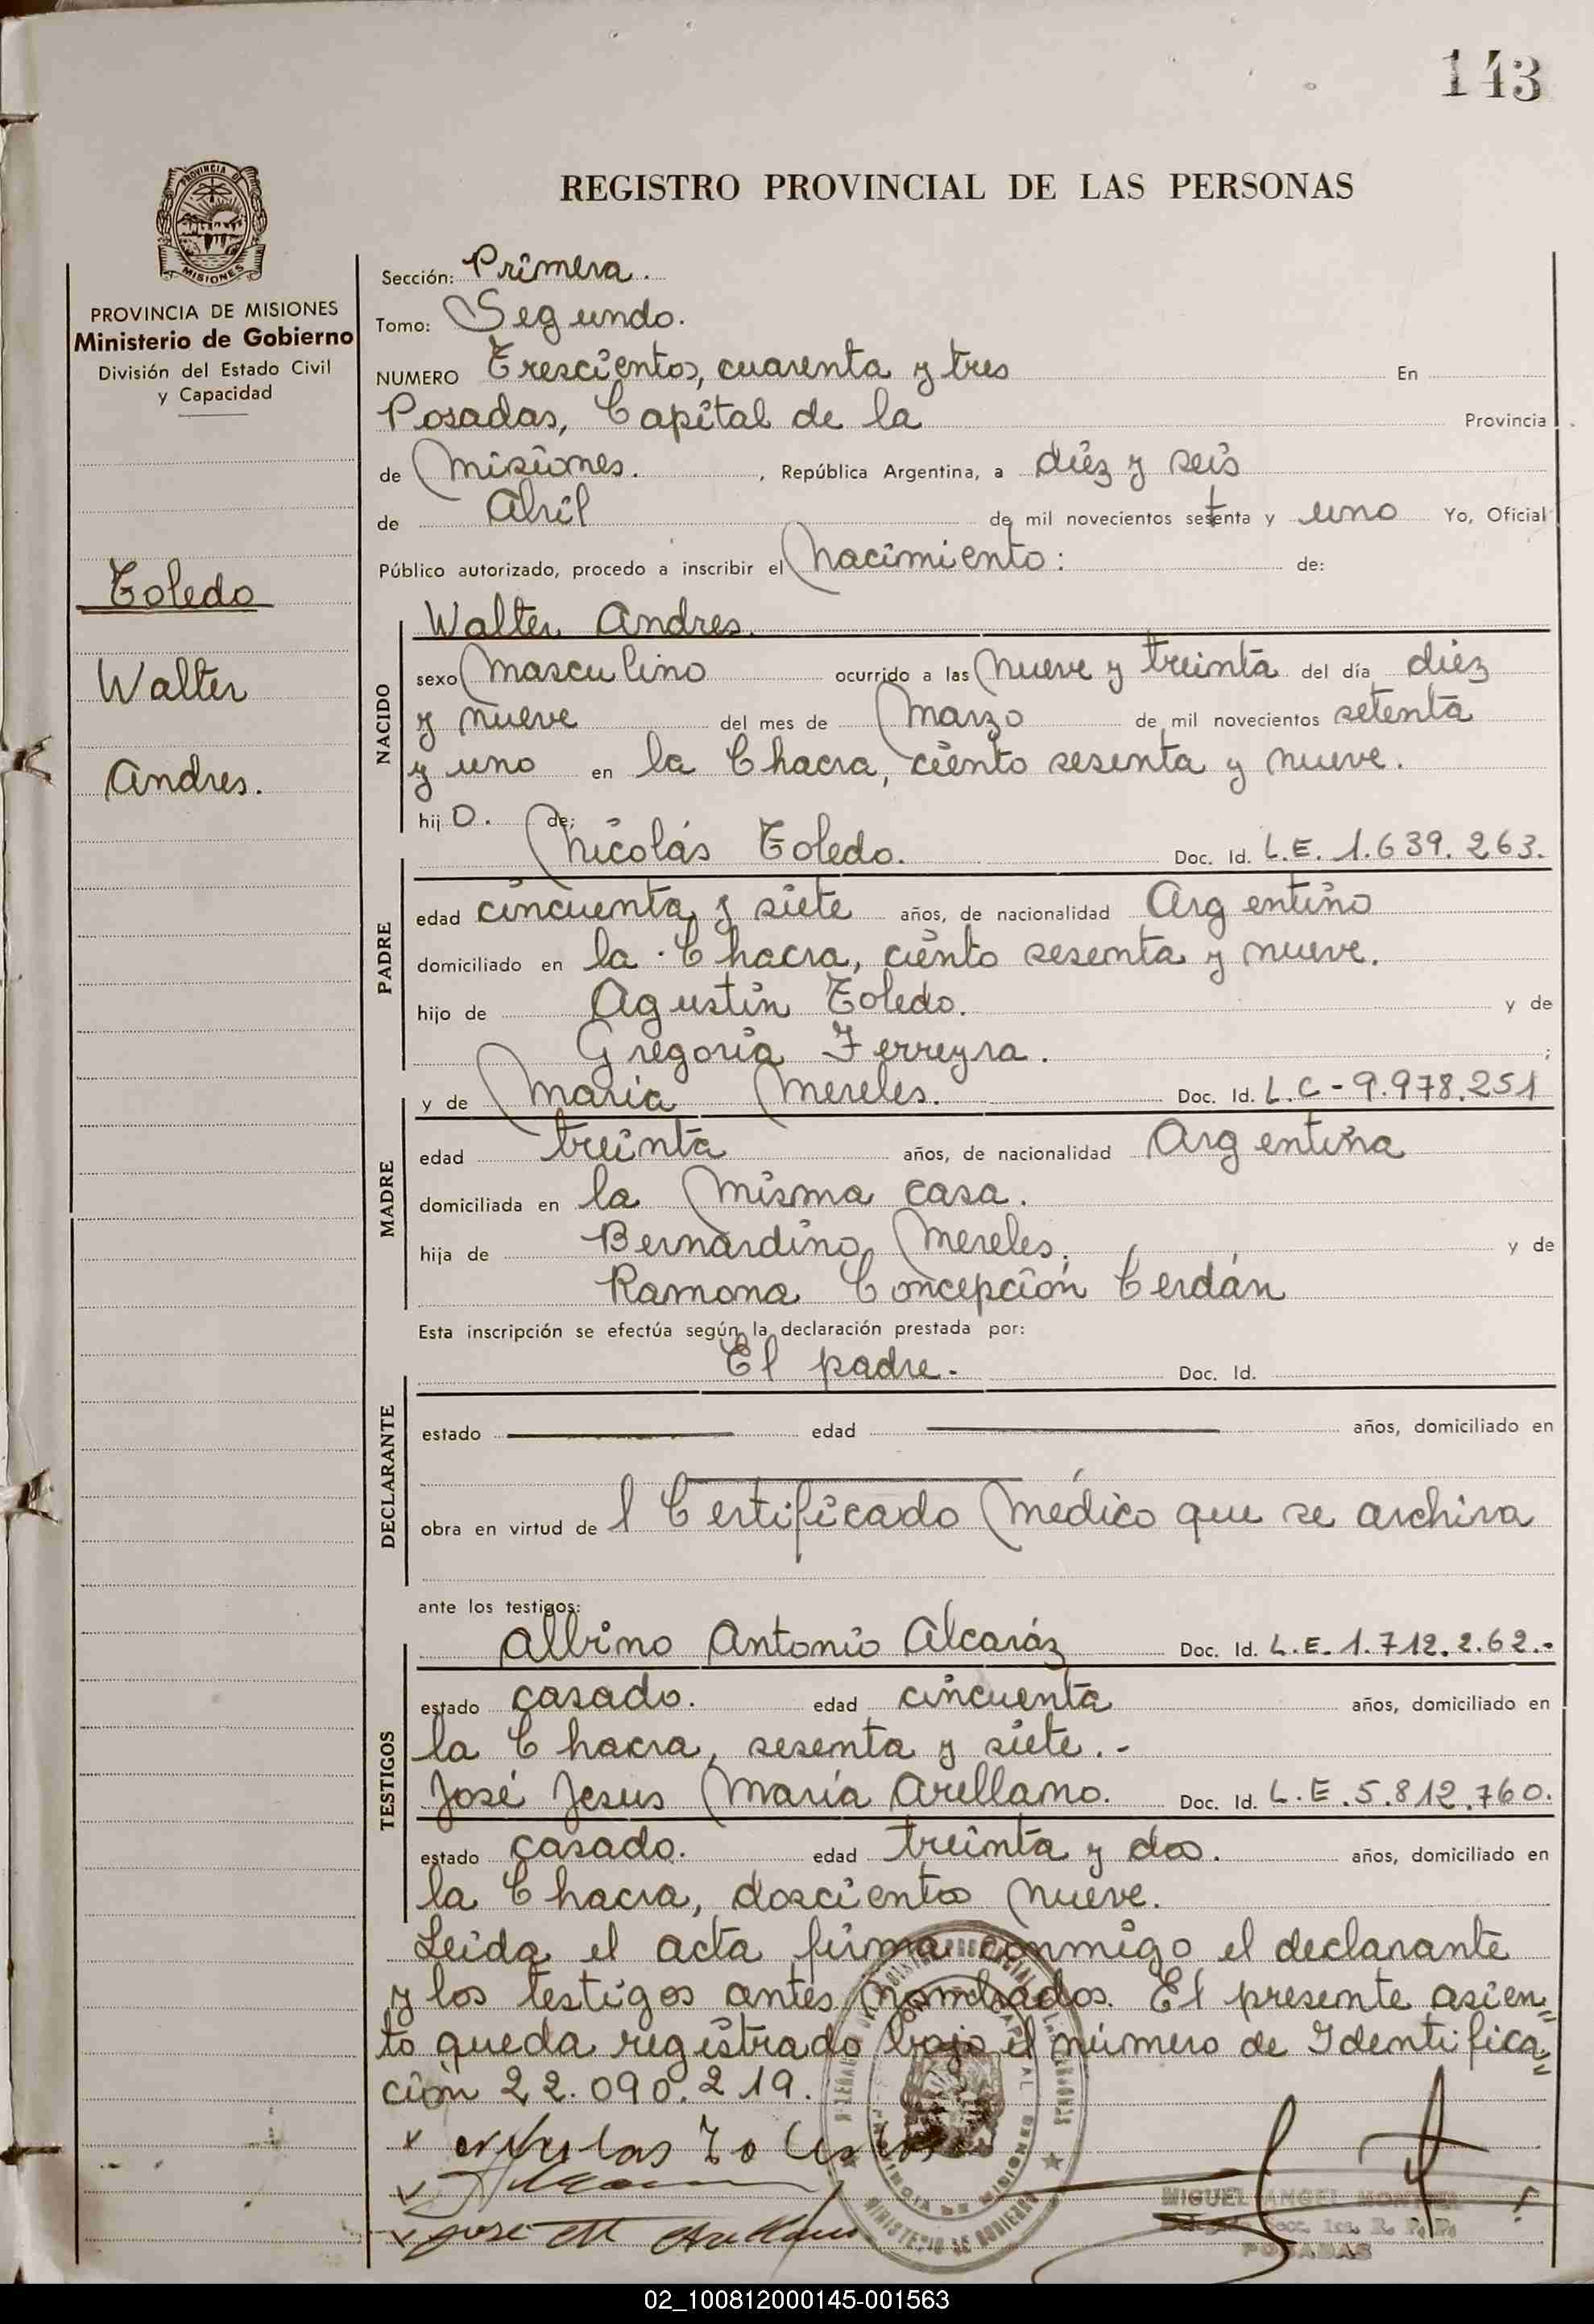 143
PROVINCIA DE
MISIONES
REGISTRO PROVINCIAL DE LAS PERSONAS
PROVINCIA DE MISIONES
Ministerio de Gobierno
División del Estado Civil
y Capacidad
Toledo
Walter
Andres.
Sección: Primera.
Tomo: Segundo.
NUMERO Trescientos, cuarenta y tres En
Posadas, Capital de la Provincia
de Misiones. , República Argentina, a diez y seis
de Abril de mil novecientos setenta y uno Yo, Oficial
Público autorizado, procedo a inscribir el Nacimiento: de:
Walter Andres.
NACIDO
sexo Masculino ocurrido a las Nueve y treinta del día diez
y nueve del mes de Marzo de mil novecientos setenta
y uno en la Chacra, ciento sesenta y nueve.
hijo. de:
Nicolás Toledo. Doc. Id. L.E. 1.639.263.
PADRE
edad cincuenta y siete años, de nacionalidad Argentino
domiciliado en la Chacra, ciento sesenta y nueve.
hijo de Agustín Toledo. y de
Gregoria Ferreyra. ;
y de María Mereles. Doc. Id. L.C - 9.978.251
MADRE
edad treinta años, de nacionalidad Argentina
domiciliada en la misma casa.
hija de Bernardino Mereles. y de
Ramona Concepción Cerdán
Esta inscripción se efectúa según la declaración prestada por:
El padre. Doc. Id.
DECLARANTE
estado edad años, domiciliado en
obra en virtud de l Certificado Médico que se archiva
ante los testigos:
Albino Antonio Alcaráz Doc. Id. L.E. 1.712.262.-
TESTIGOS
estado casado. edad cincuenta años, domiciliado en
la Chacra, sesenta y siete.-
José Jesus María Arellano. Doc. Id. L.E. 5.812.760.
estado casado. edad treinta y dos. años, domiciliado en
la Chacra, doscientos nueve.
Leida el acta firma conmigo el declarante
y los testigos antes nombrados. El presente asien"
to queda registrado bajo el número de Identifica"
ción 22.090.219.
MINISTERIO DE GOBIERNO
PROVINCIA DE MISIONES
MIGUEL ANGEL
POSADAS
02_100812000145-001563